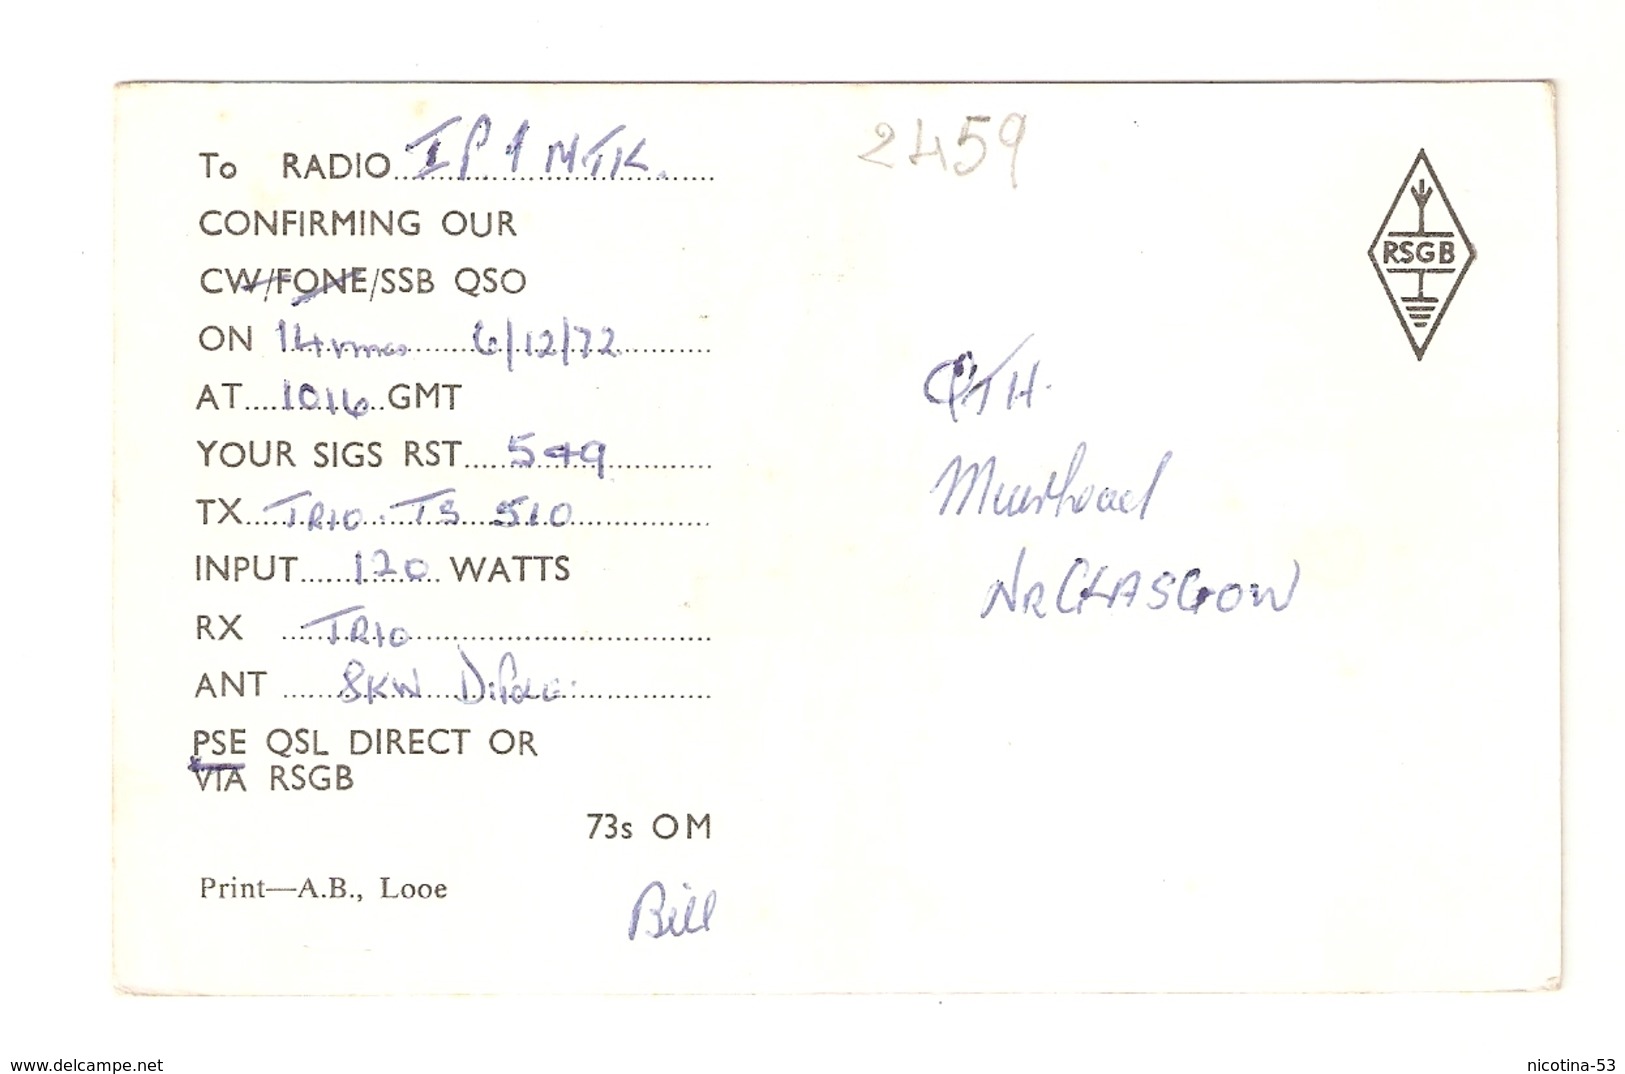 To RADIO IP1MTK.
CONFIRMING OUR
CW/FONE/SSB QSO
ON 14 6/12/72
AT 1016 GMT
YOUR SIGS RST 549
TX TRIO. TS 510
INPUT 120 WATTS
RX TRIO
ANT 8KW Dipole
PSE QSL DIRECT OR
VIA RSGB
73s OM
Print—A.B., Looe
Bill
2459
RSGB
QTH
Muirhead
NR GLASGOW
delcampe.net
nicotina-53